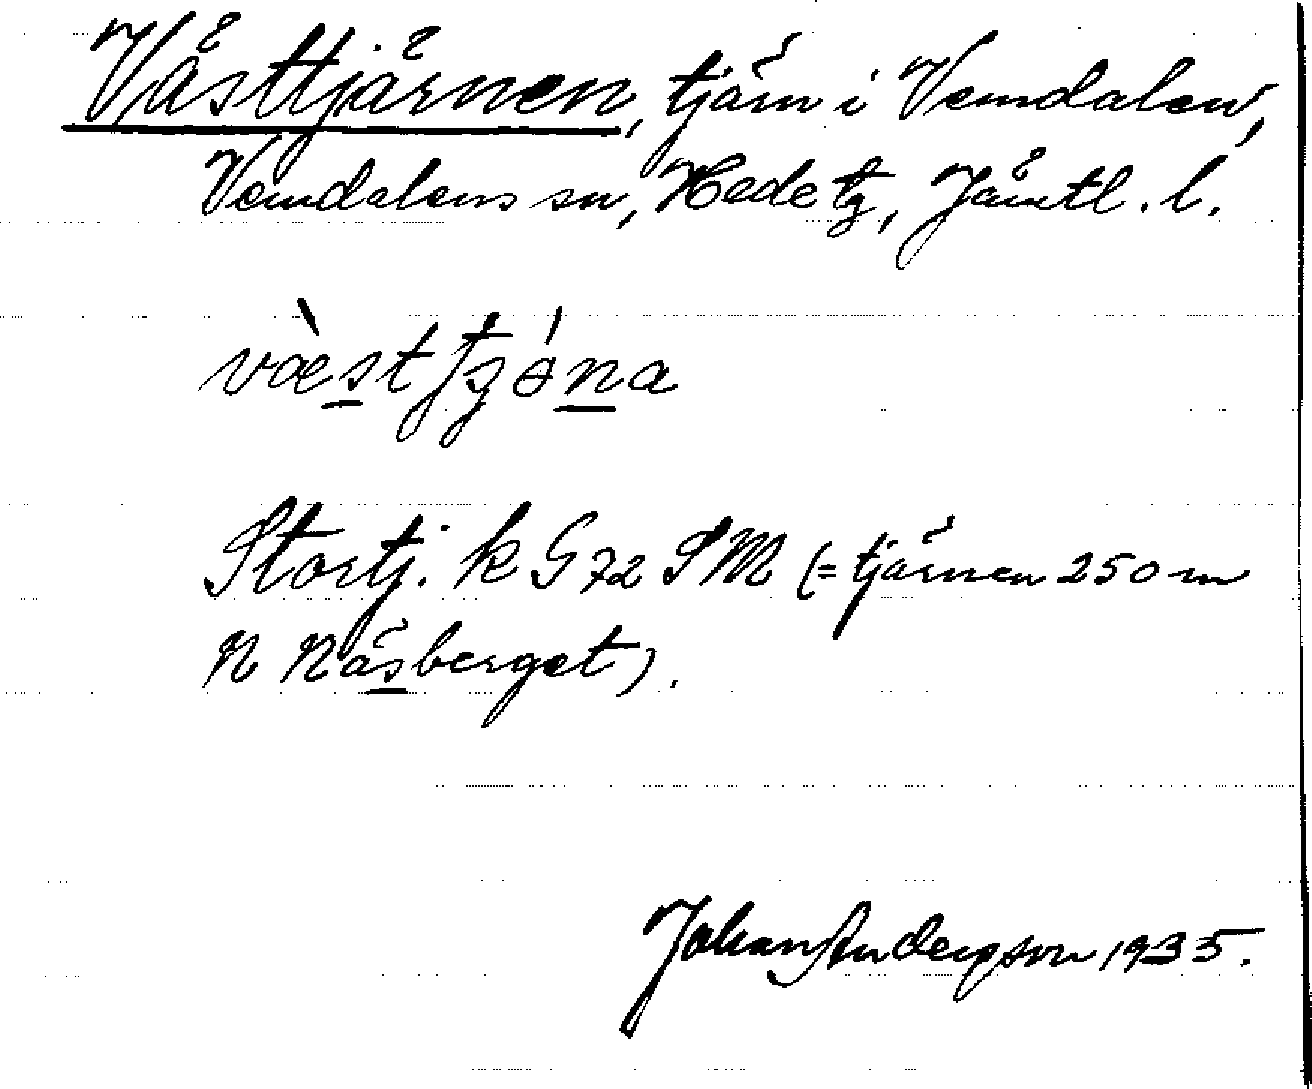 Västtjärnen, tjärn i Vemdalen,
Vemdalens sn, Hede tg, Jämtl. l.
Stortj. k G72 SM (= tjärnen 250 m
N Näsberget).
Johan Anderson 1935.